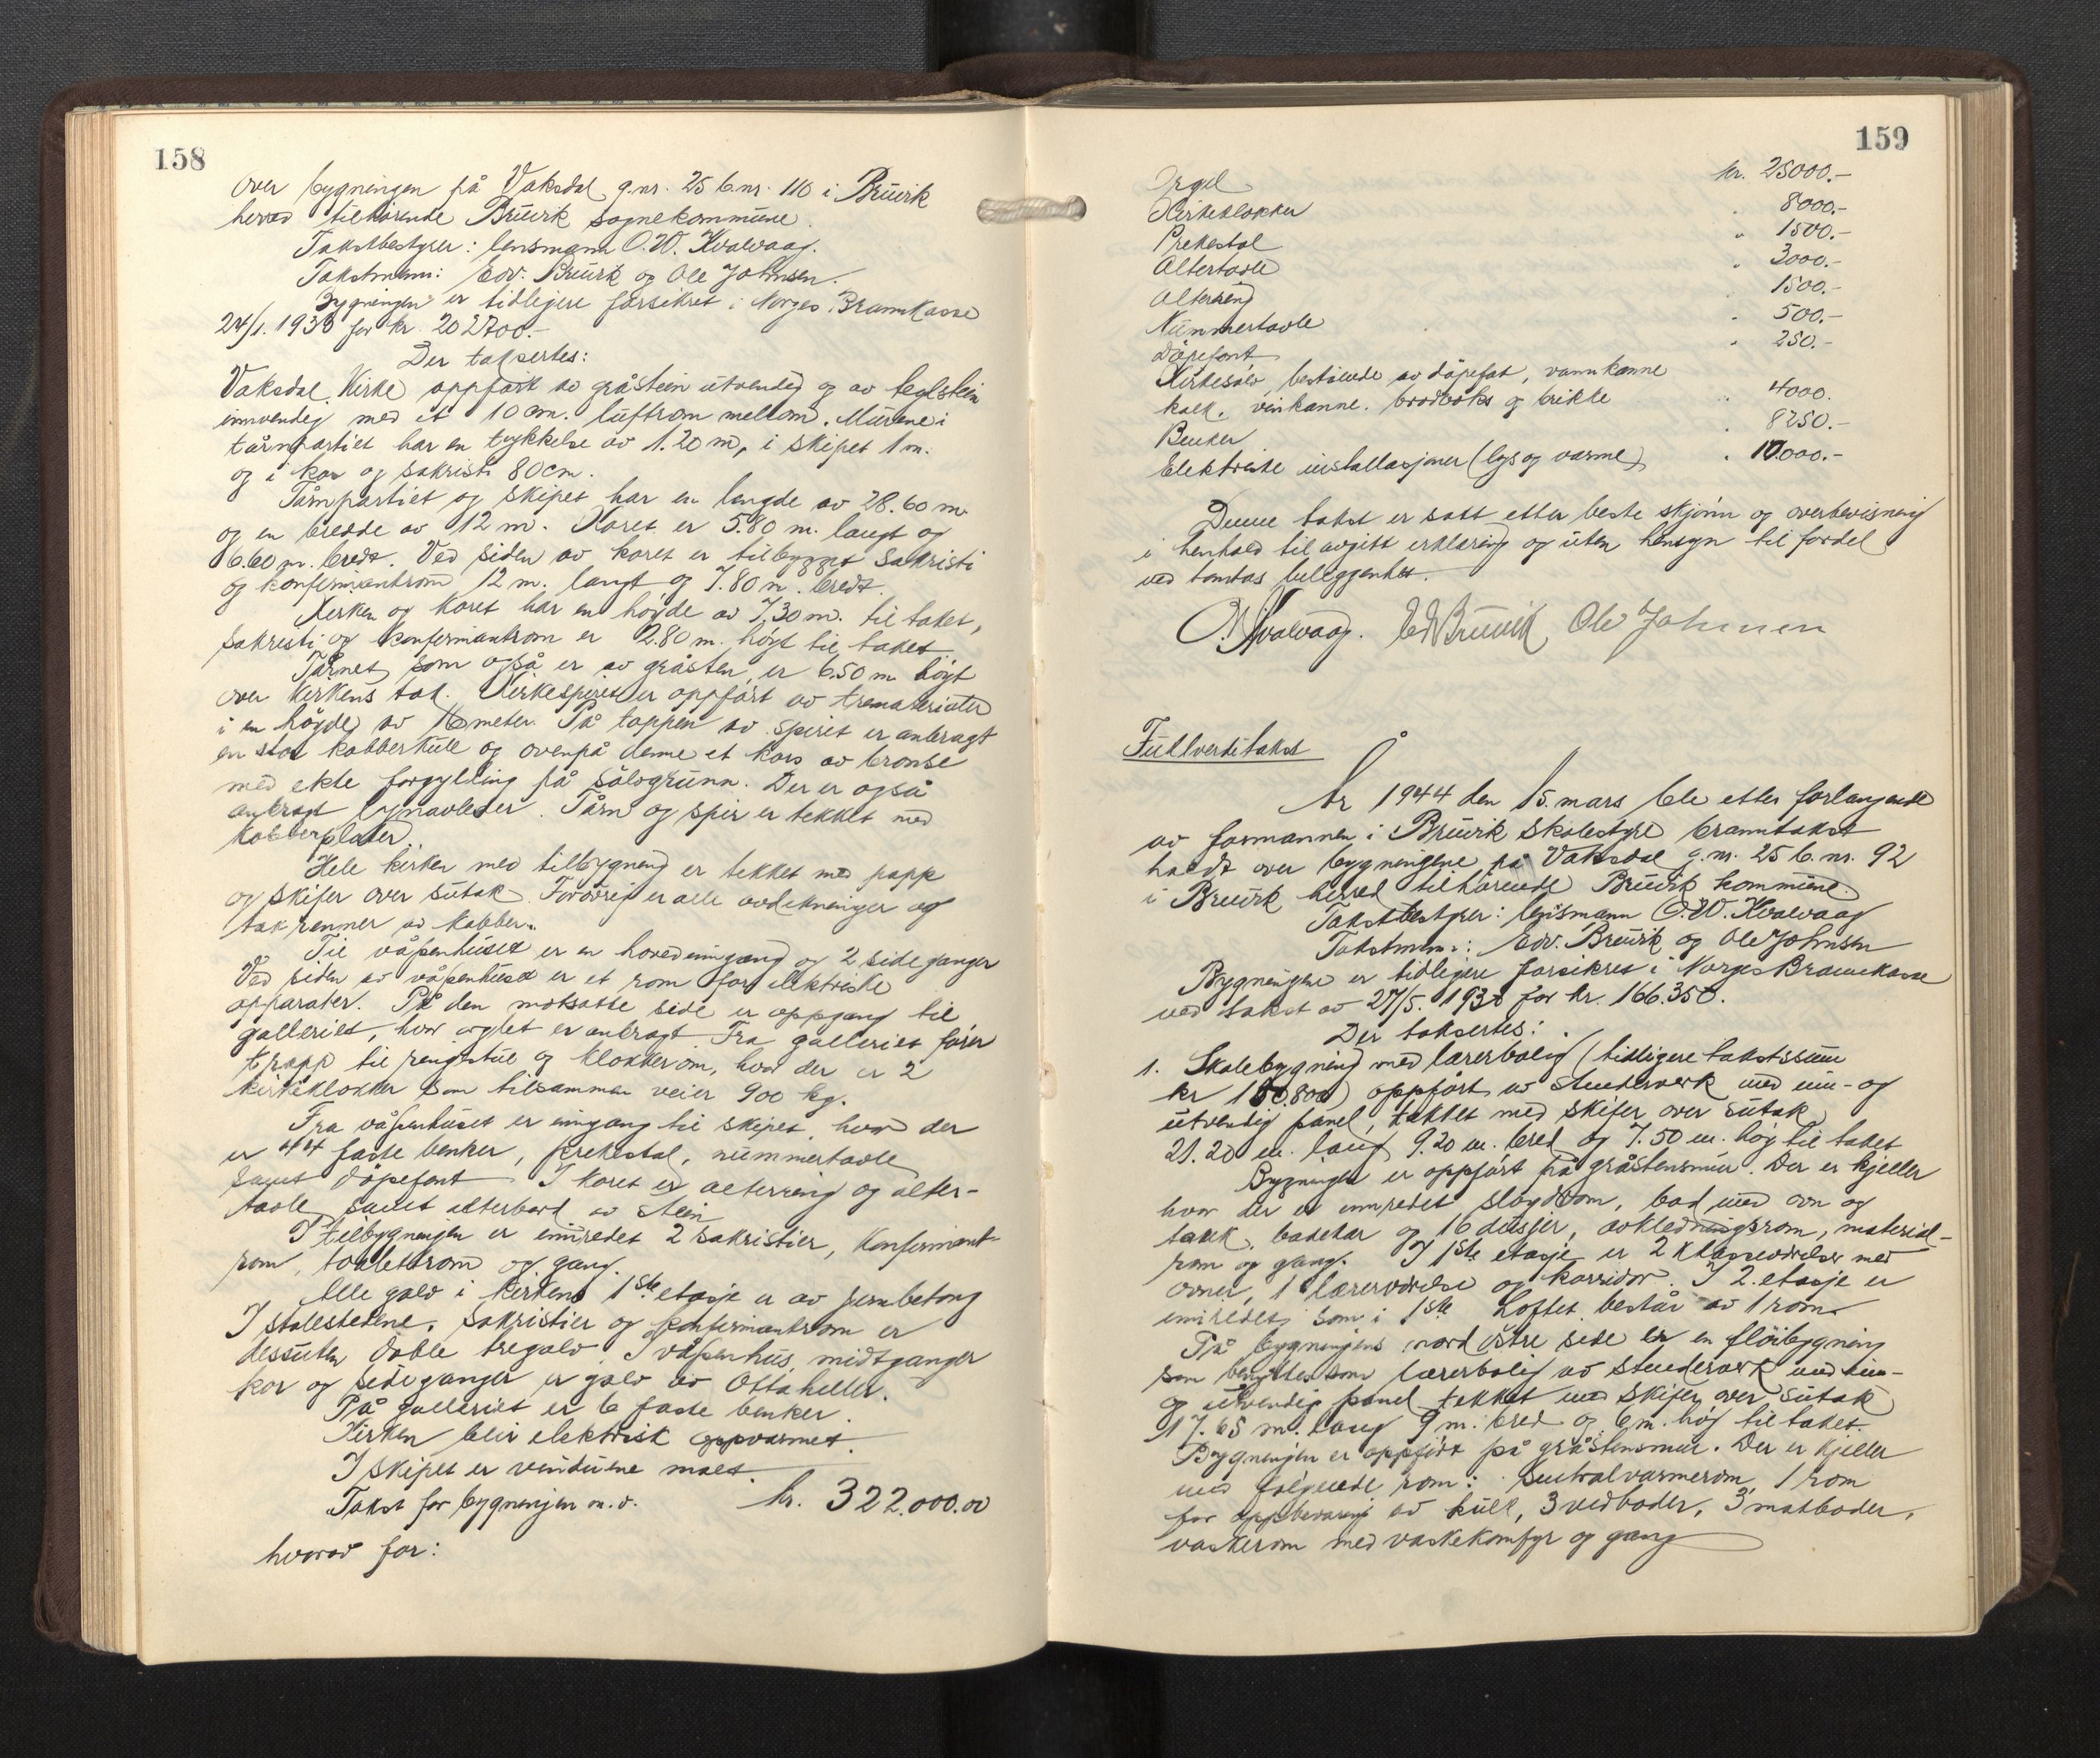 158
over bygningen på Vaksdal g.nr. 25 b.nr. 110 i Bruvik
herred tilhørende Bruvik sognekommune.
Takstbestyrer: lensmann O.W. Kvalvaag.
Takstmenn: Edv. Bruvik og Ole Johnsen.
Bygningen er tidligere forsikret i Norges Brannkasse
24/1. 1933 for kr. 202700.-
Der taksertes:
Vaksdal Kirke oppført av gråstein utvendig og av teglstein
innvendig med et 10 cm. luftrom mellom. Murene i
tårnpartiet har en tykkelse av 1.20 m, i skipet 1 m.
og i kor og sakristi 80 cm.
Tårnpartiet og skipet har en lengde av 28.60 m.
og en bredde av 12 m. Koret er 5.80 m. langt og
6.60 m. bredt. Ved siden av koret er tilbygget sakristi
og konfirmantrom 12 m. langt og 7.80 m. bredt.
Kirken og koret har en høgde av 7,30 m. til taket,
sakristi og konfirmantrom er 2.80 m. høgt til taket.
Tårnet som også er av gråsten, er 6.50 m høgt
over kirkens tak. Kirkespiret er oppført av trematerialer
i en høgde av 16 meter. På toppen av spiret er anbragt
en stor kobberkule og ovenpå denne et kors av bronse
med ekte forgylling på sølvgrunn. Der er også
anbragt lynavleder. Tårn og spir er tekket med
kobberplater.
Hele kirken med tilbygning er tekket med papp
og skifer over sutak. Forøvrig er alle avdekninger og
takrenner av kobber.
Til våpenhuset er en hovedinngang og 2 sideganger
Ved siden av våpenhuset er et rom for elektriske
apparater. På den motsatte side er oppgang til
galleriet, hvor orglet er anbragt. Fra galleriet fører
trapp til ringestue og klokkerom, hvor der er 2
kirkeklokker som tilsammen veier 900 kg.
Fra våpenhuset er inngang til skipet, hvor der
er 44 faste benker, prekestol, nummertavle
samt døpefont. I koret er alterring og alter-
tavle samt alterbord av stein
I tilbygningen er innredet 2 sakristier, konfirmant-
rom, toalettrom og gang.
Alle golv i kirkens 1ste etasje er av jernbetong
I stolestedene, sakristier og konfirmantrom er
dessuten doble tregolv. I våpenhus, midtganger
kor og sideganger er golv av Ottaheller.
På galleriet er 6 faste benker.
Kirken blir elektrisk oppvarmet.
I skipet er vinduene malt.
Takst for bygningen m.v. kr. 322.000.00
hvorav for:
159
Orgel kr. 25000.-
Kirkeklokker " 8000.-
Prekestol " 1500.-
Altertavle " 3000.-
Alterring " 1500.-
Nummertavle " 500.-
Døpefont " 250.-
Kirkesølv, bestående av døpefat, vannkanne
kalk, vinkanne, brødboks og brikke " 4000.
Benker " 8250.-
Elektriske installasjoner (lys og varme) " 10.000.-
Denne takst er satt etter beste skjønn og overbevisning
i henhold til avgitt erklæring og uten hensyn til fordel
ved tomtas beliggenhet.
O.W. Kvalvaag. Edv Bruvik Ole Johnsen
Fullverditakst
År 1944 den 15. mars ble etter forlangende
av formannen i Bruvik skolestyre branntakst
holdt over bygningene på Vaksdal g.nr. 25 b.nr. 92
i Bruvik herred tilhørende Bruvik kommune.
Takstbestyrer: lensmann O.W. Kvalvaag
Takstmenn: Edv. Bruvik og Ole Johnsen
Bygningene er tidligere forsikret i Norges Brannkasse
ved takst av 27/5. 1930 for kr. 166.350.
Der taksertes:
1. Skolebygning med lærerbolig (tidligere takstsum
kr 150.800) oppført av stenderverk med inn- og
utvendig panel, tekket med skifer over sutak
21.20 m. lang 9.20 m. bred og 7.50 m. høg til taket
Bygningen er oppført på gråstensmur. Der er kjeller
hvor der er innredet sløydrom, bad med ovn og
tank, badekar og 16 dusjer, avkledningsrom, material-
rom og gang. I 1ste etasje er 2 klasseværelser med
ovner, 1 lærerværelse og korridor. I 2. etasje er
innredet som i 1ste. Loftet består av 1 rom.
På bygningens nordøstre side er en fløibygning
som benyttes som lærerbolig av stenderverk med inn-
og utvendig panel tekket med skifer over sutak
17.65 m. lang 9 m. bred og 6 m. høg til taket.
Bygningen er oppført på gråstensmur. Der er kjeller
med følgende rom: sentralvarmerom, 1 rom
for oppbevaring av kull, 3 vedboder, 3 matboder,
vaskerom med vaskekomfyr og gang